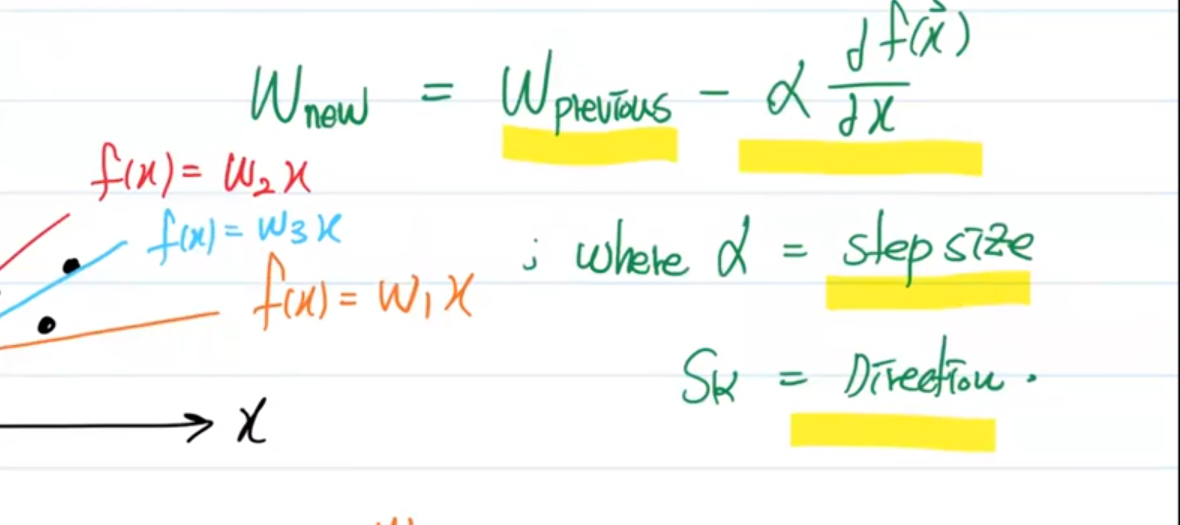 W_new = W_previous - α ∂f(x⃗)/∂x
f(x) = w₂x
f(x) = w₃x
f(x) = w₁x
; where α = step size
S_k = Direction.
x